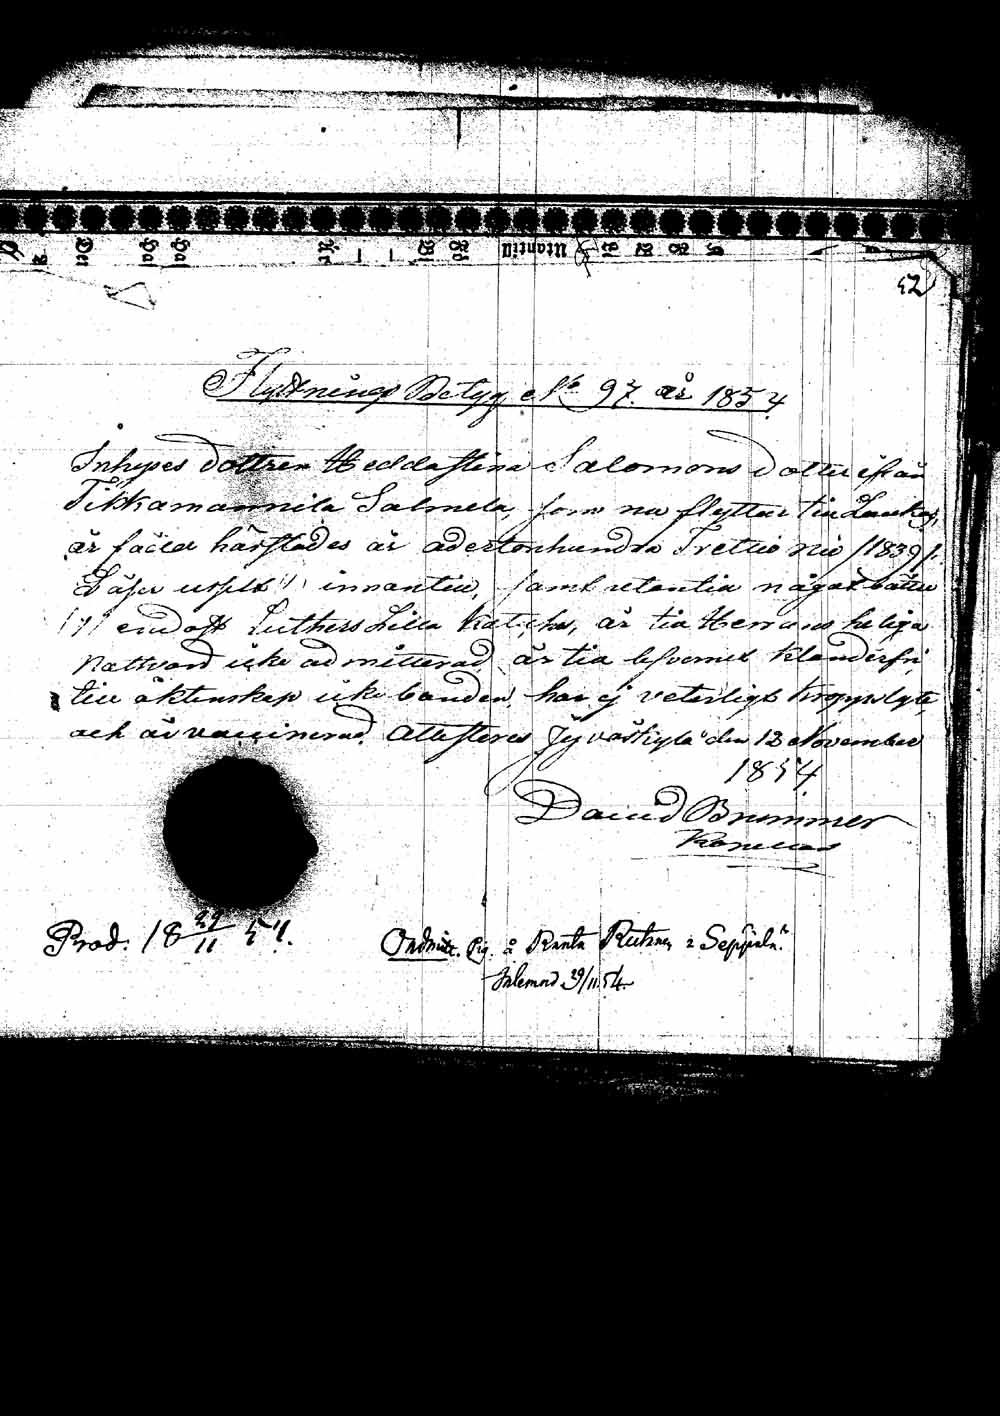 52
Flyttnings Betyg No 97. år 1854.
Inhyses dottren Heddastina Salomons dotter ifrån
Tikkamannila Salmela, som nu flyttar till Laukas,
är född härstädes år adertonhundra Trettio nio /1839/.
Läser uselt innantill, samt utantill något bättre
endast Luthers Lilla Katches, är till Herrans heliga
Nattvard icke admitterad, är till lefvernet klanderfri,
till äktenskap icke bunden, har ej veterligt kroppslyte,
och är vaccinerad. Attesteras Jyväskylä den 13 November
1854
David Brummer
Prod. 18 29/11 54.
Pig. å Ranta Seppälä
29/11 54.